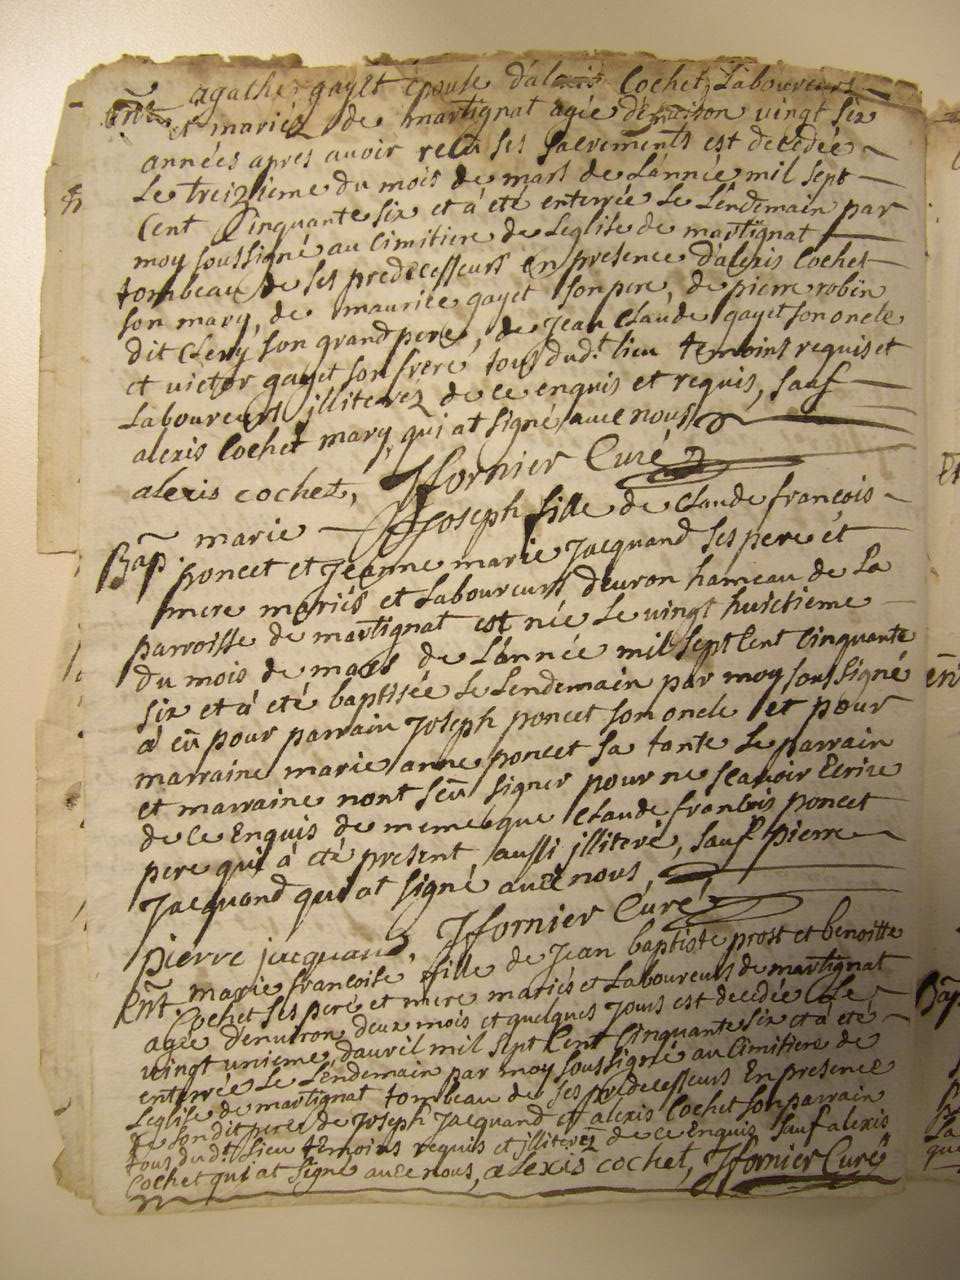 Ent. agathe gayet epouse d'alexis Cochet, Laboureurs
et mariéz de martignat agée d'environ vingt six
années apres avoir recu ses sacrements est decedée
Le treizieme du mois de mars de L'année mil sept
Cent Cinquante six et à été enterrée Le Lendemain par
moy soussigné au Cimitiere de L'eglise de martignat
tombeau de ses predecesseurs en presence d'alexis Cochet
son mary, de maurice gayet son pere, de pierre robin
dit Clery son grand pere, de Jean Claude gayet son oncle
et victor gayet son frere, tous dud.t lieu temoins requis et
Laboureurs jlliterez de ce enquis et requis, sauf
alexis Cochet mary, qui at signé avec nous
alexis cochet, Jfornier Curé
Bap. marie Joseph fille de Claude francois
poncet et Jeanne marie Jacquand ses pere et
mere mariés et Laboureurs d'evron hameau de La
parroisse de martignat est née Le vingt huictieme
du mois de mars de L'année mil sept Cent Cinquante
six et à été baptisée Le Lendemain par moy soussigné
à eü pour parrain Joseph poncet son oncle et pour
marraine marie anne poncet sa tante Le parrain
et marraine n'ont sçeu signer pour ne scavoir Ecrire
de Ce Enquis de meme que Claude francois poncet
pere qui à été present, aussi jllitere, sauf pierre
Jacquand qui at signé avec nous
pierre jacquand, Jfornier Curé
Ent. marie francoise fille de Jean baptiste prost et benoitte
Cochet ses pere et mere mariés et Laboureurs de martignat
agée d'environ deux mois et quelques Jours est decedée Le
vingt unieme d'avril mil sept Cent Cinquante six et à été
enterrée Le Lendemain par moy soussigné au Cimitiere de
L'eglise de martignat tombeau de ses predecesseurs En presence
de son dit pere de Joseph Jacquand et alexis Cochet son parrain
tous dud.t Lieu temoins requis et jlliterez de ce Enquis sauf alexis
Cochet qui at signé avec nous, alexis cochet, Jfornier Curé